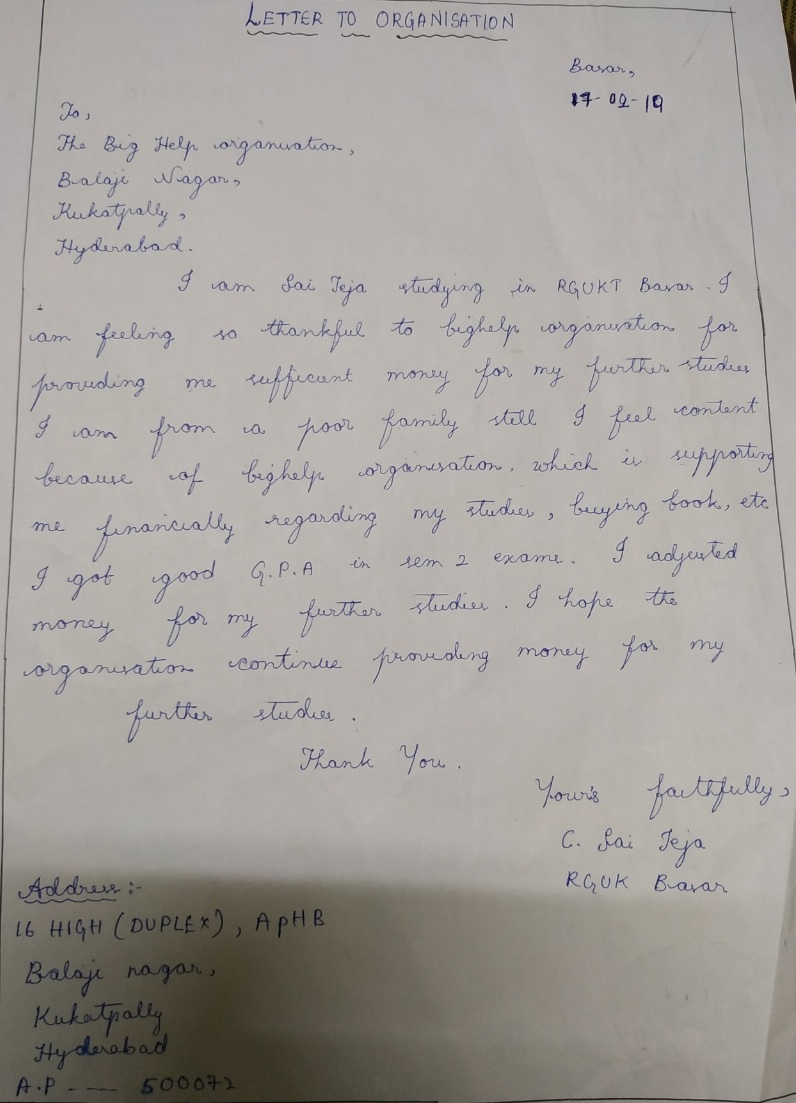 LETTER TO ORGANISATION
Basar,
17-02-19
To,
The Big Help organisation,
Balaji Nagar,
Kukatpally,
Hyderabad.
I am Sai Teja studying in RGUKT Basar. I
am feeling so thankful to bighelp organisation for
providing me sufficient money for my further studies
I am from a poor family still I feel content
because of bighelp organisation, which is supporting
me financially regarding my studies, buying book, etc
I got good G.P.A in sem 2 exame. I adjusted
money for my further studies. I hope the
organisation continue providing money for my
further studies.
Thank You.
Your's faithfully,
C. Sai Teja
RGUK Basar
Address :-
16 HIGH (DUPLEX), APHB
Balaji nagar,
Kukatpally
Hyderabad
A.P -- — 500072